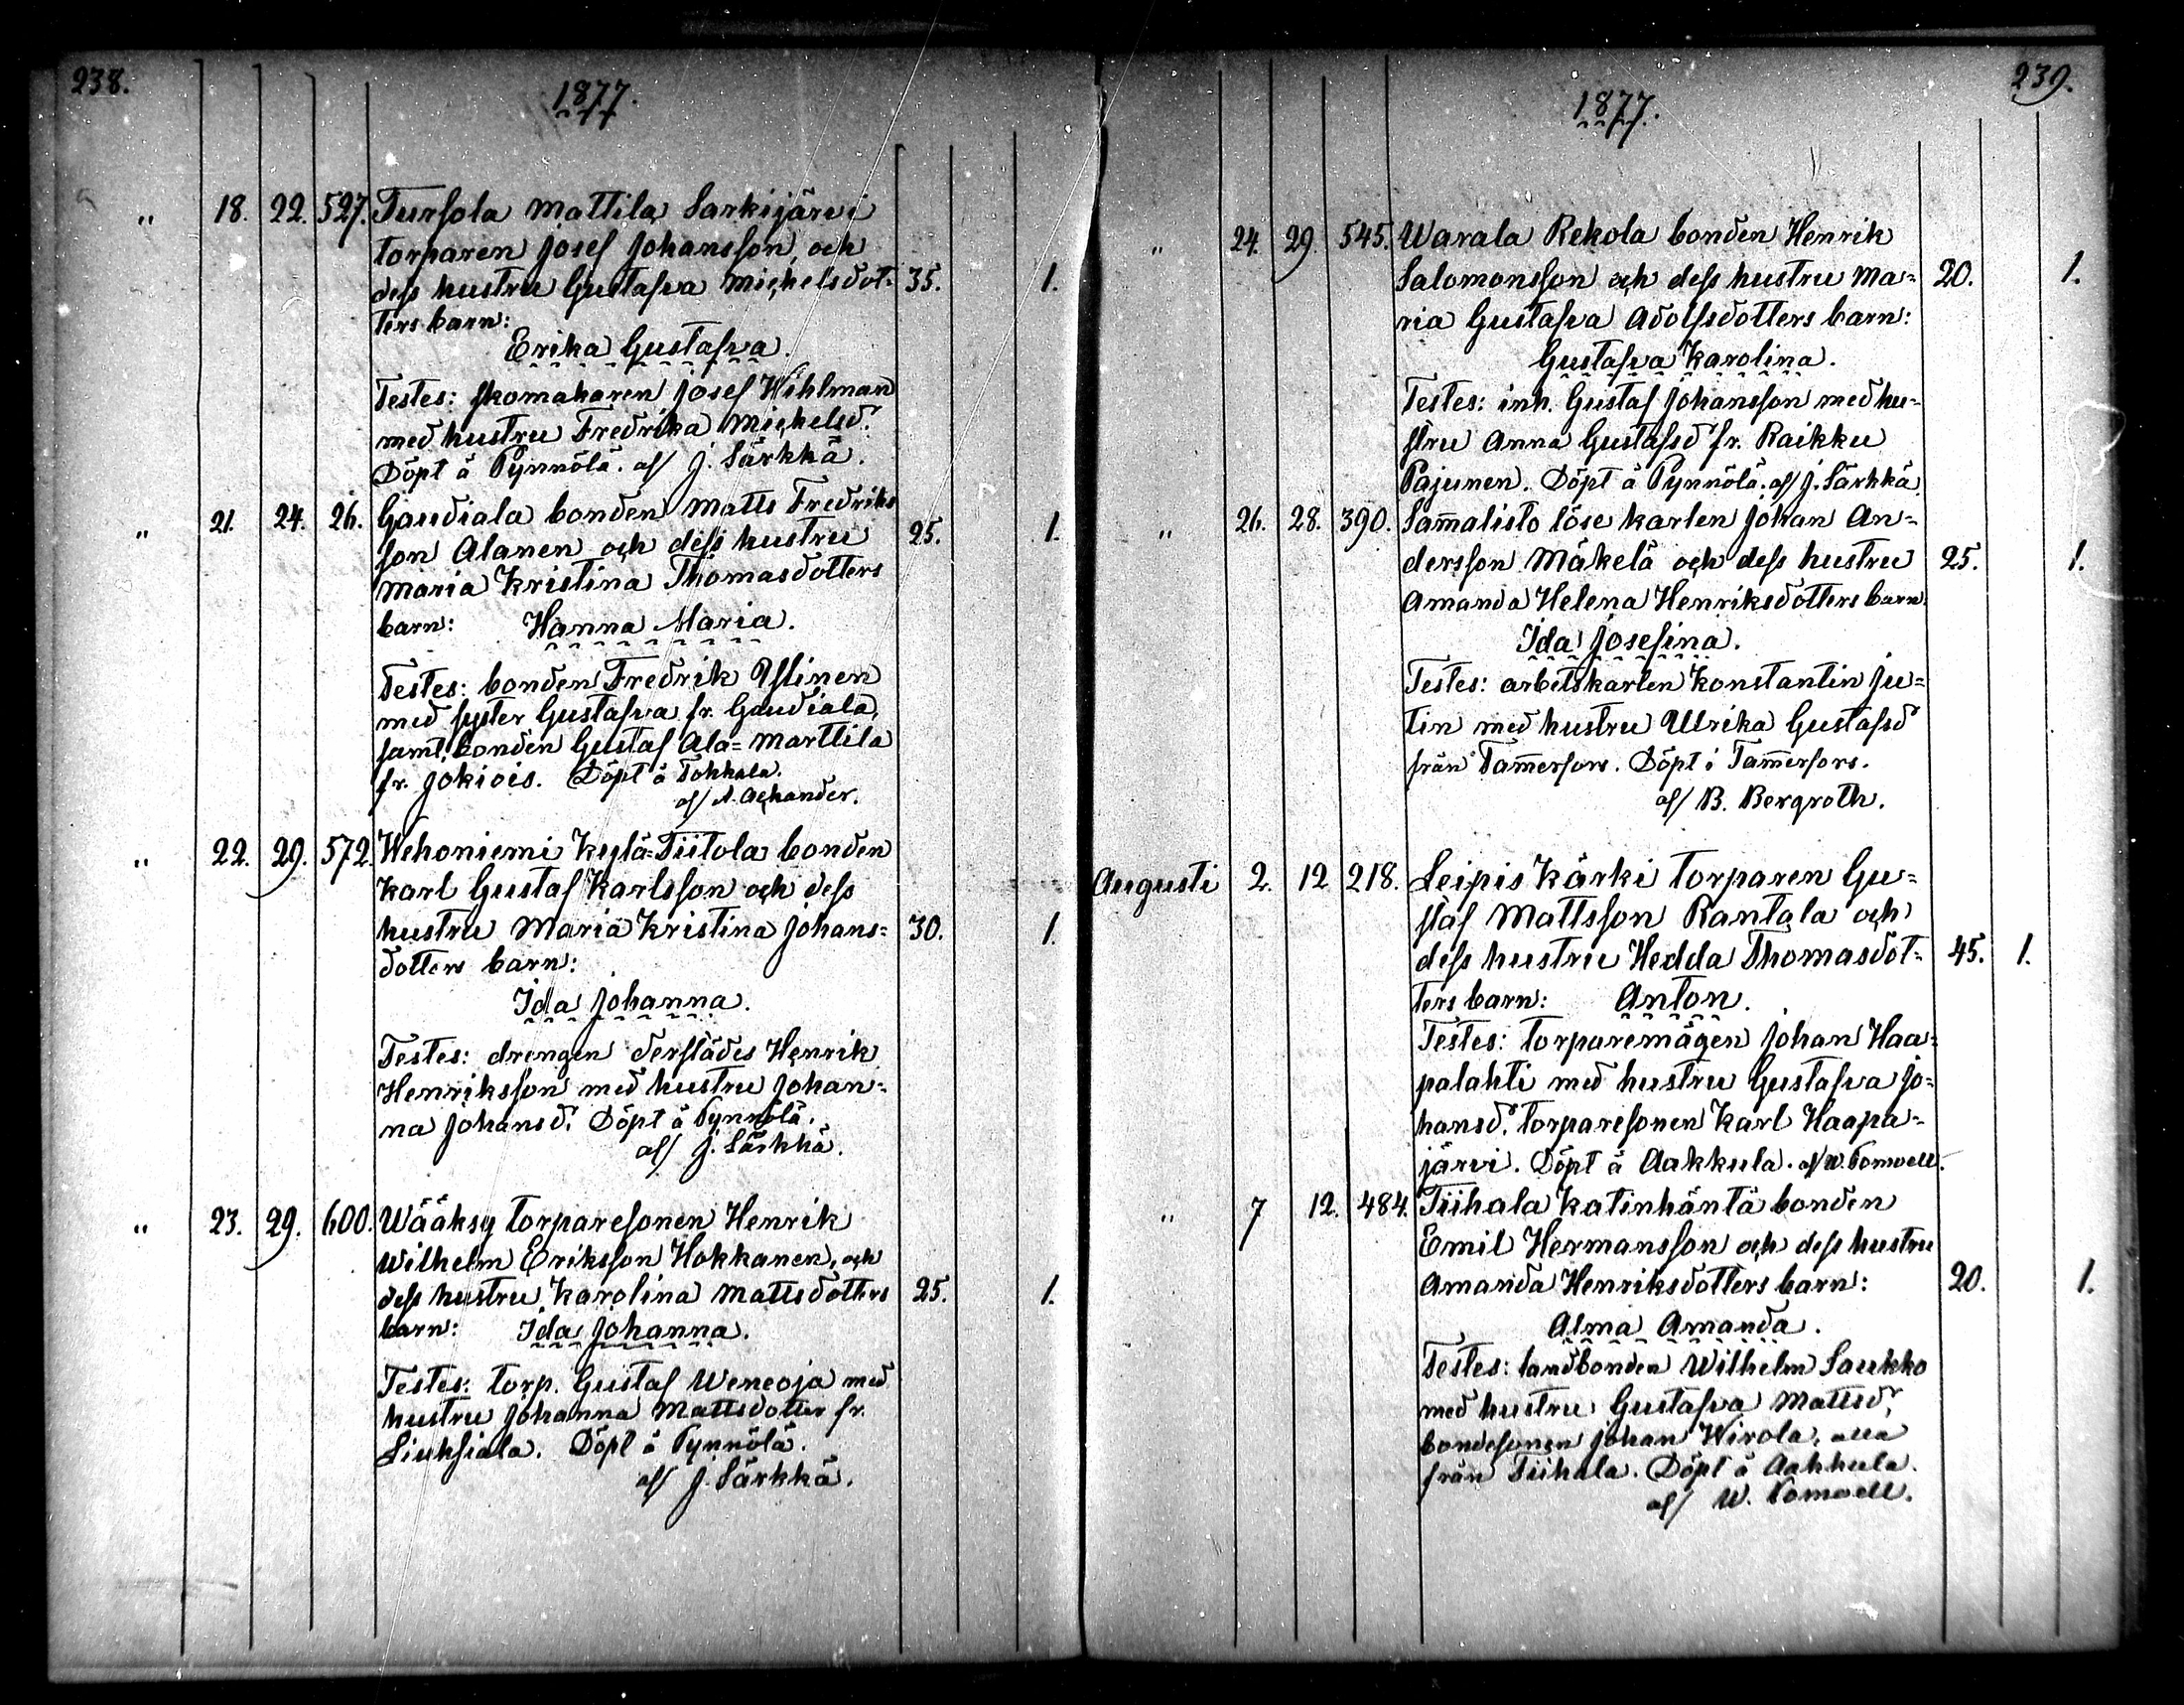 238.
1877.
" 18. 22. 527. Tursola Mattila Sarkijärvi
torparen Josef Johansson, och
dess hustru Gustafva Michelsdot- 35. 1.
ters barn:
Erika Gustafva.
Testes: skomakaren Josef Wihlman
med hustru Fredrika Michelsd.
Döpt å Pynnölä. af/ J. Särkkä.
" 21. 24. 26. Gaudiala bonden Matts Fredriks
son Alanen och dess hustru 25. 1.
Maria Kristina Thomasdotters
barn: Hanna Maria.
Testes: bonden Fredrik Uslinen
med syster Gustafva fr. Gaudiala,
samt bonden Gustaf Ala=Marttila
fr. Jokiois. Döpt å
af/ A. Ackander.
" 22. 29. 572. Wehoniemi Kylä-Tiitola bonden
Karl Gustaf Karlsson och dess
hustru Maria Kristina Johans= 30. 1.
dotters barn:
Ida Johanna.
Testes: drengen derstädes Henrik
Henriksson med hustru Johan=
na Johansd. Döpt å Pynnölä.
af/ J. Särkkä.
" 23. 29. 600. Wääksy torparesonen Henrik
Wilhelm Eriksson Hokkanen, och
dess hustru Karolina Mattsdotters 25. 1.
barn: Ida Johanna.
Testes: torp. Gustaf Weneoja med
hustru Johanna Mattsdotter fr.
Liuksiala. Döpt å Pynnölä.
af/ J. Särkkä.
239.
1877.
" 24. 29. 545. Warala Rekola bonden Henrik
Salomonsson och dess hustru Ma= 20. 1.
ria Gustafva Adolfsdotters barn:
Gustafva Karolina.
Testes: inh. Gustaf Johansson med hu=
stru Anna Gustafsd fr. Raikku
Pajunen. Döpt å Pynnölä. af/ J. Särkkä.
" 26. 28. 390. Sam̄alisto löse karlen Johan An=
dersson Mäkelä och dess hustru 25. 1.
Amanda Helena Henriksdotters barn:
Ida Josefina.
Testes: arbetskarlen Konstantin Ju=
tin med hustru Ulrika Gustafsd
från Tam̄erfors. Döpt i Tam̄erfors.
af/ B. Bergroth.
Augusti 2. 12 218. Leipis Kärki torparen Gu=
staf Mattsson Rantala och
dess hustru Hedda Thomasdot= 45. 1.
ters barn: Anton.
Testes: torparemågen Johan Haa=
palahti med hustru Gustafva Jo=
hansd. torparesonen Karl Haapa=
järvi. Döpt å Aakkula. af/ W. Pomoell.
" 7 12. 484. Tiihala Katinhäntä bonden
Emil Hermansson och dess hustru
Amanda Henriksdotters barn: 20. 1.
Alma Amanda.
Testes: landbonden Wilhelm Saukko
med hustru Gustafva Mattsd,
bondesonen Johan Wirola, alla
från Tiihala. Döpt å Aakkula.
af/ W. Pomoell.